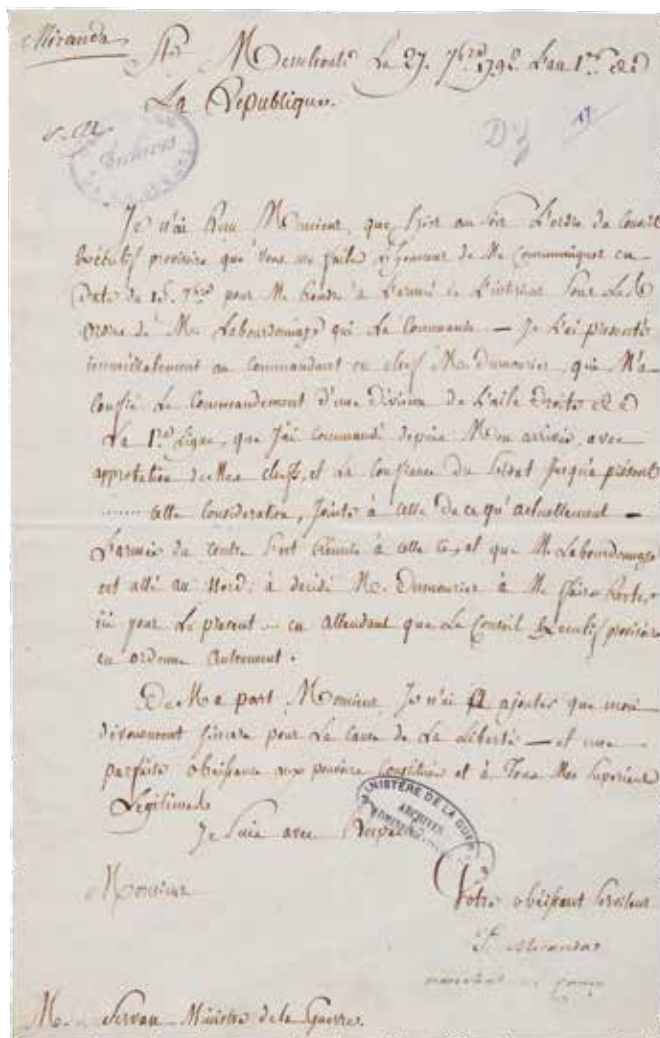 Miranda
Ste Menehould Le 27. 7bre 1792 L'an 1er de
La Republique.
Archives
Je n'ai Recu Monsieur, que hier au soir L'ordre du Conseil
Exécutif provisoire que Vous me faite L'honneur de Me Communiquer en
Date du 7bre pour Me Rendre à L'armée de L'interieur Sous Les
Ordres de Mr. Labourdonnaye qui La Commande — Je L'ai presenté
immediatement au Commandant en cheff Mr. Dumourier, qui M'a
Confié Le Commandement d'une Division de L'aile droite de
La 1re Ligne, que J'ai Commandé depuis Mon arrivée, avec
approbation de Mes cheffs, et La Confiance du Soldat Jusqu'à présent
...... cette Consideration, Jointe à celle de ce qu'actuellement —
L'armée du centre Sont Réunie à celle ci, et que Mr. Labourdonnaye
est allé au Nord: à décidé Mr. Dumourier à Me faire Rester
ici pour Le present ... en attendant que Le Conseil Executif provisoire
en ordonne Autrement.
De Ma part, Monsieur, Je n'ai à ajouter que mon
dévouement Sincere pour La Cause de La Liberté — et une
parfaite obéissance aux pouvoirs Constitués et à Tous Mes Superieurs
Legitimes
Je Suis avec Respect
MINISTÈRE DE LA GUERRE
ARCHIVES
ADMINISTRATIVES
Monsieur
Votre obéissant Serviteur
F. Miranda
marechal de camp
M. Servan Ministre de la Guerre.